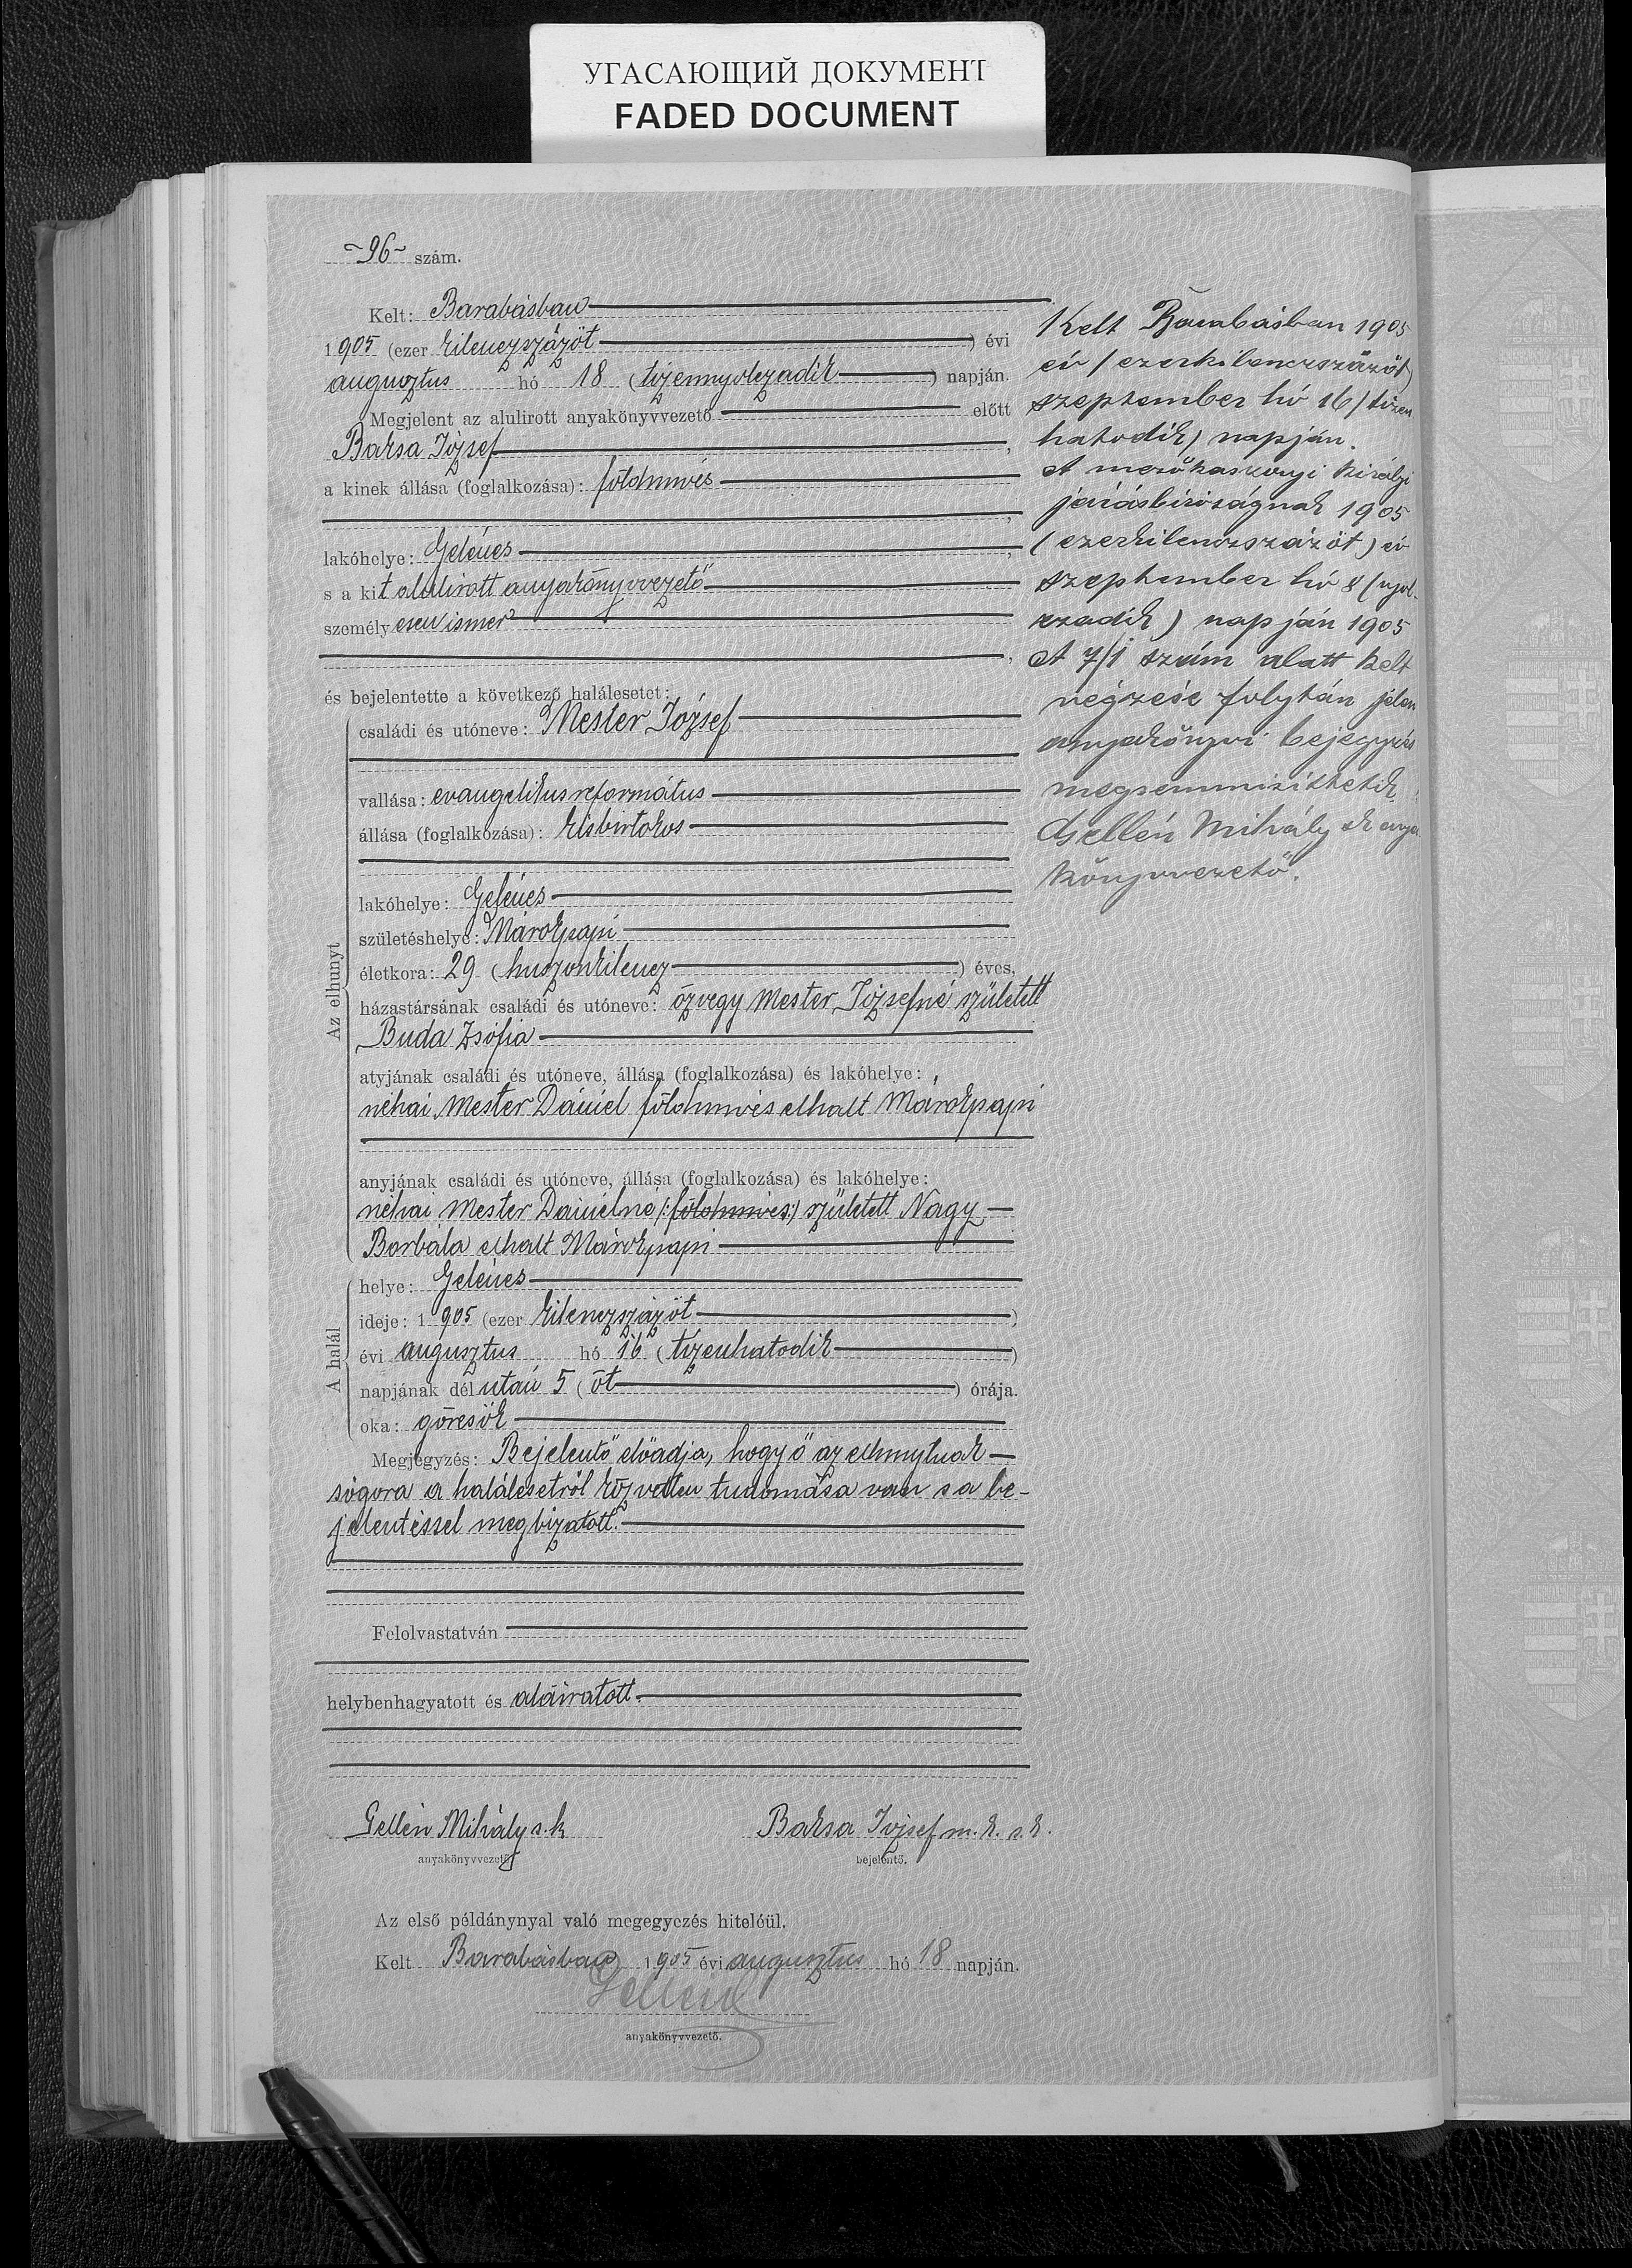 УГАСАЮЩИЙ ДОКУМЕНТ
FADED DOCUMENT
-96- szám.
Kelt: Barabásban
1905 (ezer kilenczszázöt ) évi
augusztus hó 18 (tizennyolczadik ) napján.
Megjelent az alulirott anyakönyvvezető előtt
Baksa József ,
a kinek állása (foglalkozása): földmivés
,
lakóhelye: Gelénes ,
s a kit alulirott anyakönyvvezető
személyesen ismer
,
és bejelentette a következő halálesetet:
Az elhunyt
családi és utóneve: Mester József
vallása: evangelikus református
állása (foglalkozása): kisbirtokos
lakóhelye: Gelénes
születéshelye: Márokpapi
életkora: 29 (huszonkilencz ) éves,
házastársának családi és utóneve: özvegy Mester Józsefné született
Buda Zsófia
atyjának családi és utóneve, állása (foglalkozása) és lakóhelye:
néhai Mester Dániel földmivés elhalt Márokpapi
anyjának családi és utóneve, állása (foglalkozása) és lakóhelye:
néhai Mester Dánielné (:földmivés:) született Nagy
Borbála elhalt Márokpapi
A halál
helye: Gelénes
ideje: 1905 (ezer kilenczszázöt )
évi augusztus hó 16 (tizenhatodik )
napjának délután 5 (öt ) órája.
oka: görcsök
Megjegyzés: Bejelentő előadja, hogy ő az elhunytnak
sógora a halálesetről közvetlen tudomása van s a be-
jelentéssel megbizatott.
Felolvastatván
helybenhagyatott és aláiratott.
Gellén Mihály s.k
anyakönyvvezető
Baksa József m. k. s. k.
bejelentő.
Az első példánynyal való megegyezés hiteléül.
Kelt Barabásban 1905 évi augusztus hó 18 napján.
Gellén
anyakönyvvezető.
Kelt Barabásban 1905
év (ezerkilenczszázöt)
szeptember hó 16 (tizen
hatodik) napján.
A mezőkaszonyi királyi
járásbiróságnak 1905
(ezerkilenczszázöt) év
szeptember hó 8 (nyol-
czadik) napján 1905
A 7/1 szám alatt kelt
végzése folytán jelen
anyakönyvi bejegyzés
megsemmisíttetik.
Gellén Mihály sk anya
könyvvezető.